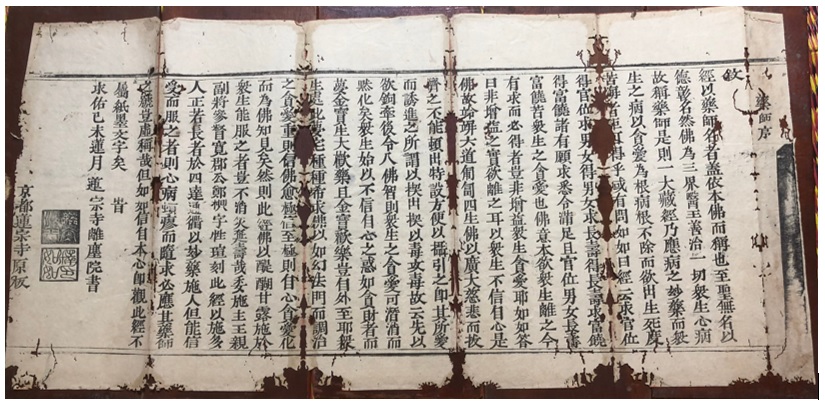 藥師序
敘
經以藥師名者蓋依本佛而稱也至聖無名以
德彰名然佛為三界醫王善治一切眾生心病
故稱藥師是則一大藏經乃應病之妙藥而眾
生之病以貪愛為根病根不除而欲出生死
苦海者 得乎或有問如如曰經云求官位
得官位求男女得男女求長壽得長壽求富饒
得富饒諸有願求悉令滿足且官位男女長壽
富饒苦眾生之貪愛也佛意本欲眾生離之今
有求而必得者豈非增益眾生貪愛耶如如答
曰非增益之實欲離之耳以眾生不信自心是
佛故 大道 四生佛以廣大慈悲而拔
濟之不能頓出特設方便以攝引之即其所愛
而誘進之所謂以楔出楔以毒去毒故云先以
欲鉤牽後令入佛智則眾生之貪愛可潛消而
默化矣眾生始以不信自心之惑如貪財者而
夢金寶生大歡樂且金寶歡樂豈自外至耶眾
生 種種希求佛以如幻法門而調治
之貪愛重則信佛愈極信至極則自心貪愛化
而為佛知見矣然則此經佛以醍醐甘露施於
眾生能服之者豈不消災延壽哉委施主王親
副將參督寬郎公鄭 字性瑄刻此經以施多
人正若長者於四達 衢以妙藥施人但能信
受而服之者則心病頓瘳而隨求必應其藥師
之號豈虛稱哉但如如信自本心即觀此經不
屬紙墨文字矣 旹
求佑己未蓮月 蓮宗寺離塵院書
京都蓮宗寺原板